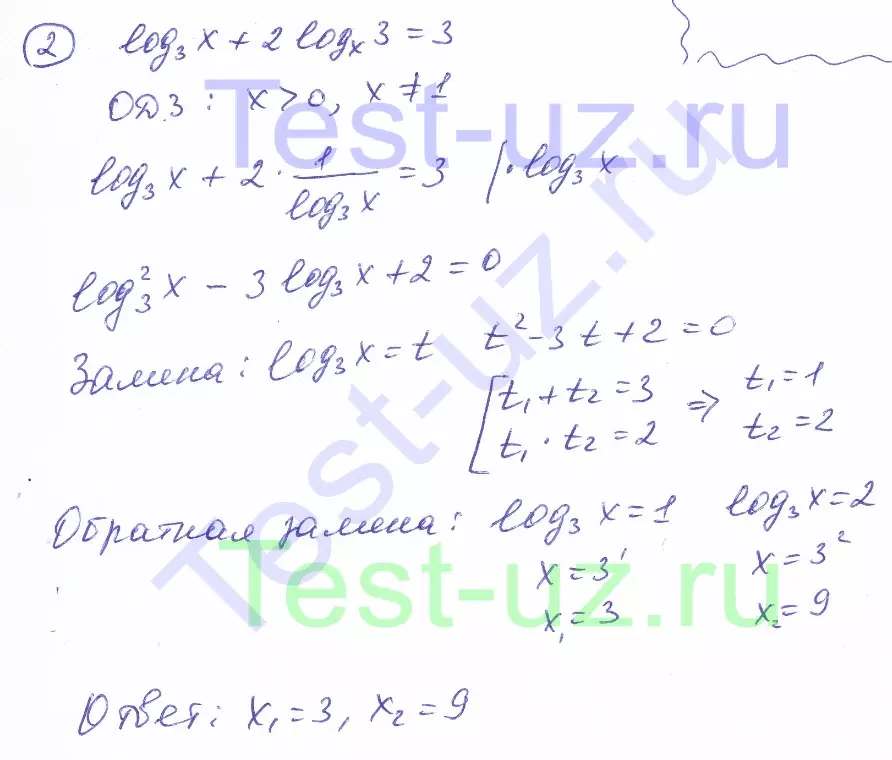 2 log₃ x + 2 logₓ 3 = 3
ОДЗ: x > 0, x ≠ 1
log₃ x + 2 · 1/log₃ x = 3 | · log₃ x
log₃² x − 3 log₃ x + 2 = 0
Замена: log₃ x = t t² − 3t + 2 = 0
[t₁ + t₂ = 3 ⇒ t₁ = 1
t₁ · t₂ = 2 t₂ = 2
Обратная замена: log₃ x = 1 log₃ x = 2
x = 3¹ x = 3²
x₁ = 3 x₂ = 9
Ответ: x₁ = 3, x₂ = 9
Test-uz.ru
Test-uz.ru
Test-uz.ru